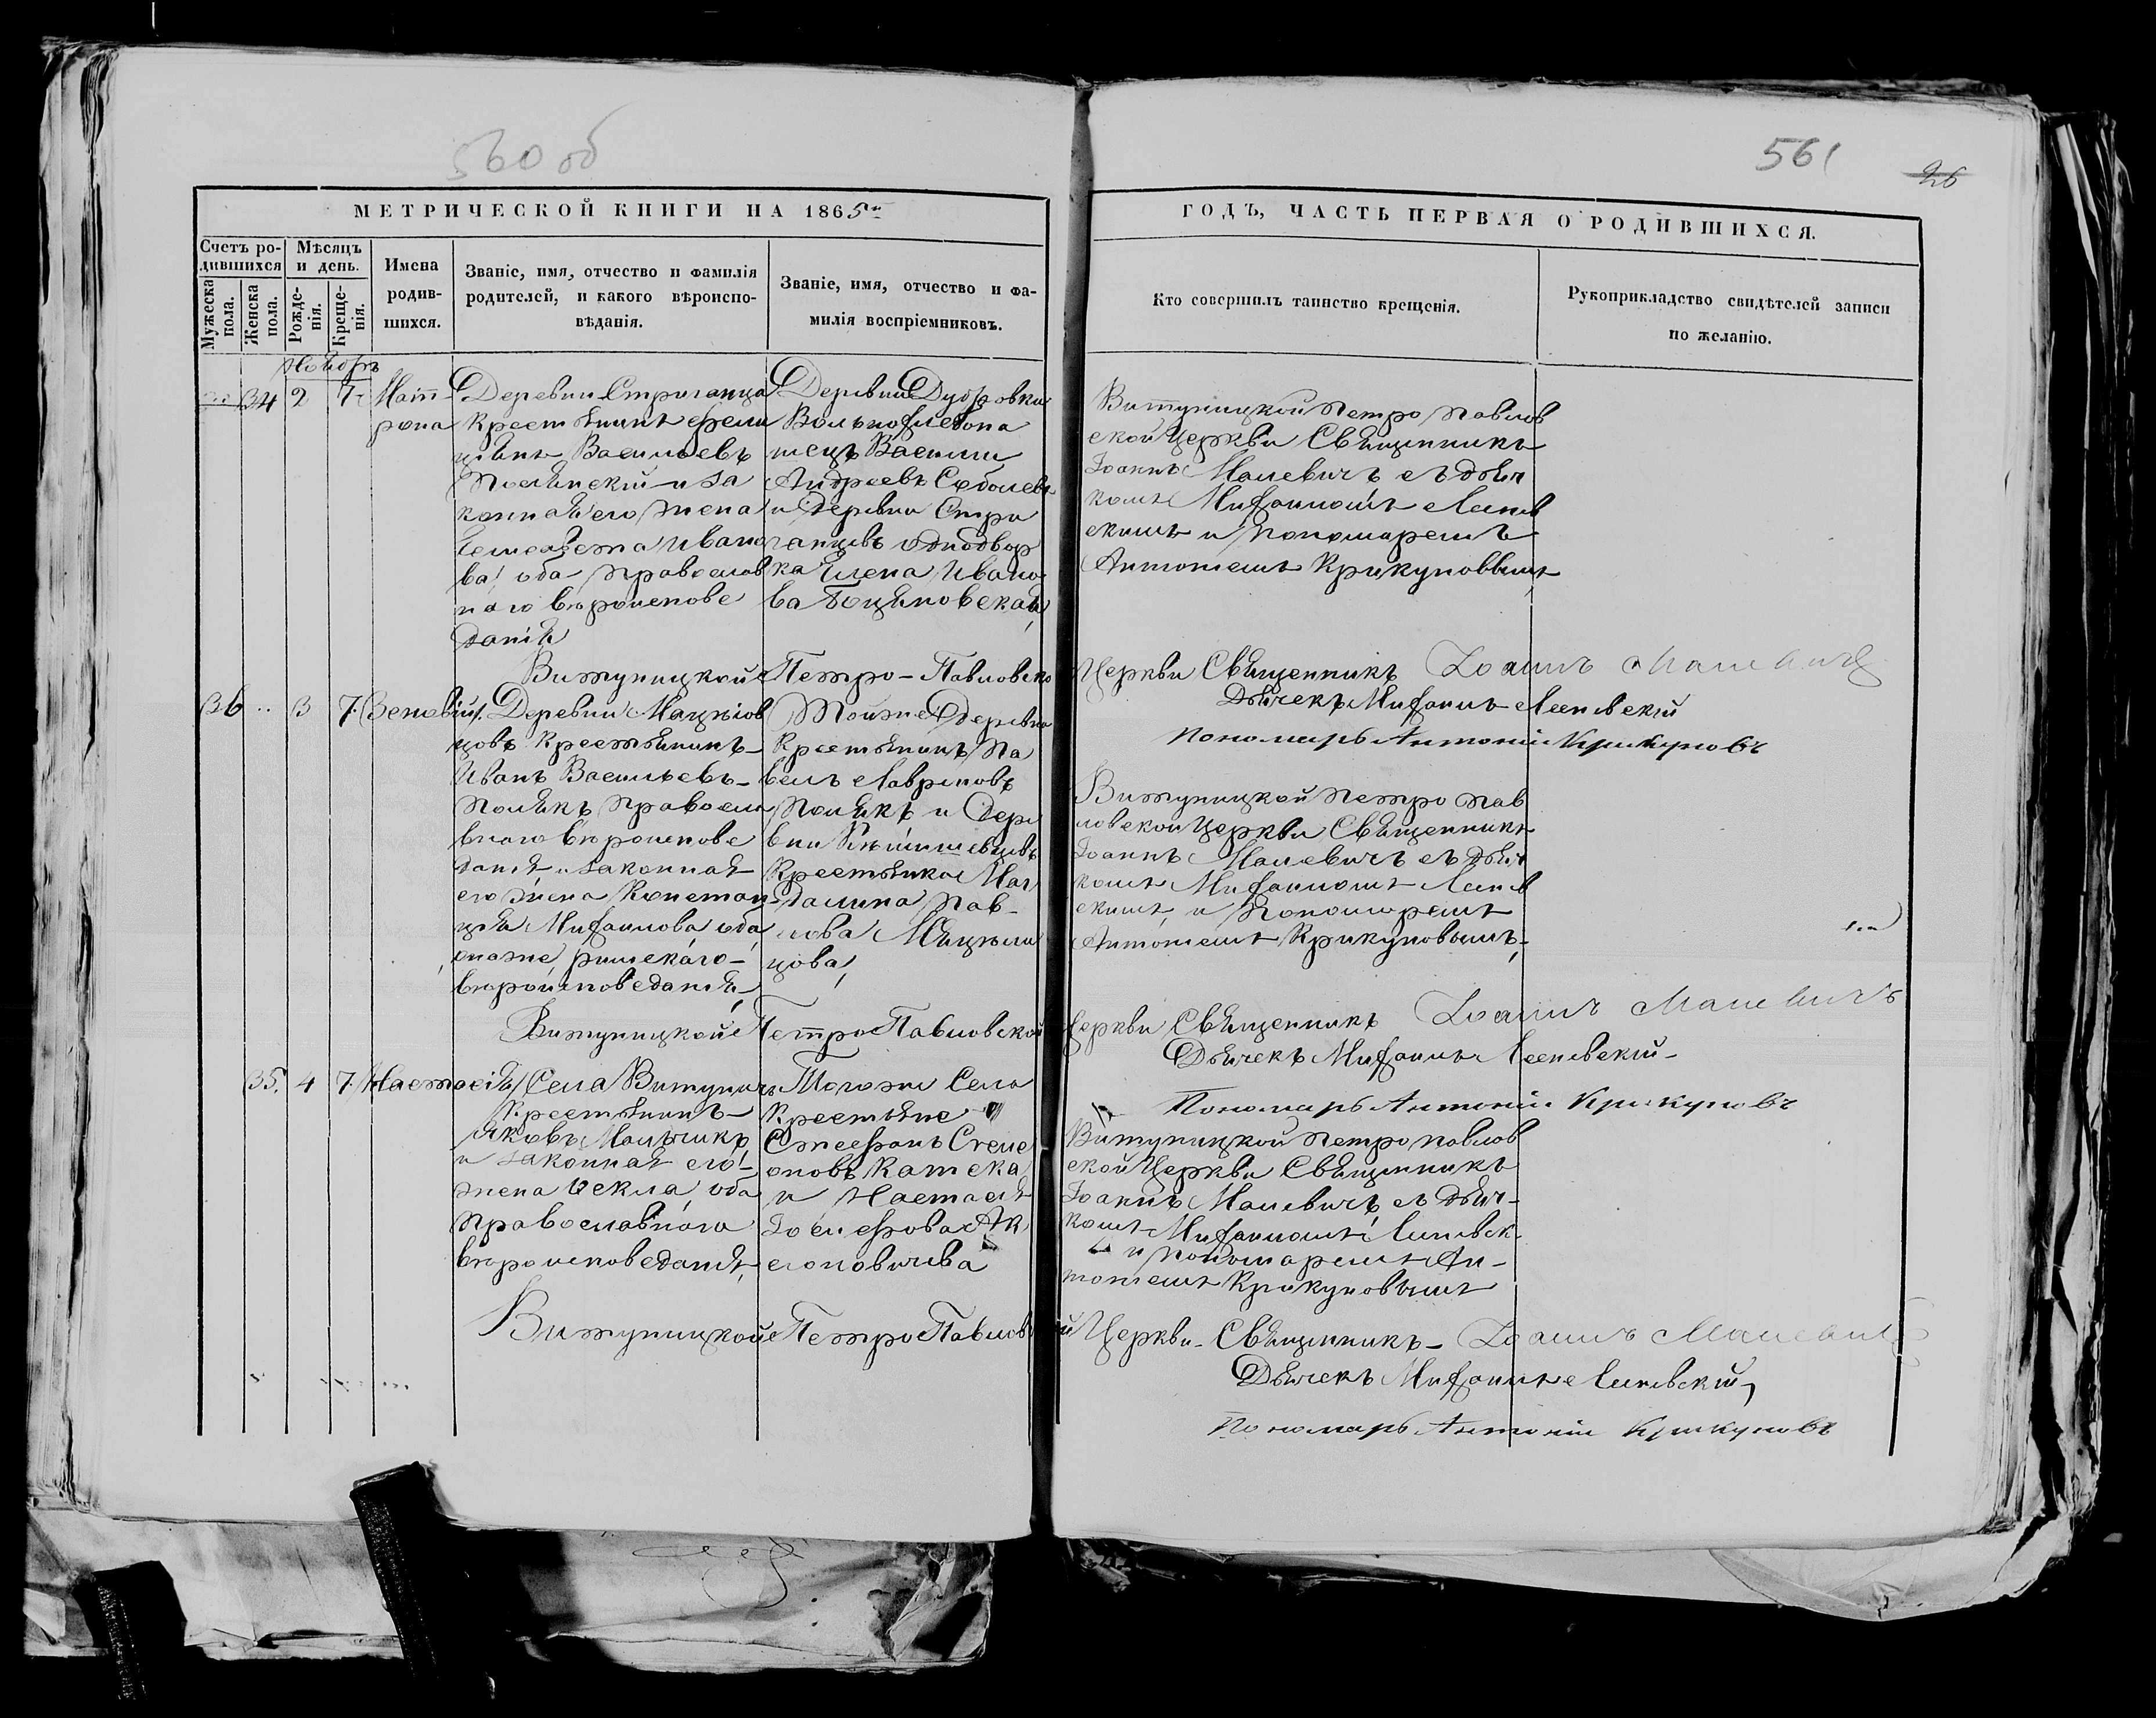 560 об
561
26
МЕТРИЧЕСКОЙ КНИГИ НА 1865й
ГОДЪ, ЧАСТЬ ПЕРВАЯ О РОДИВШИХСЯ.
Счетъ ро-
дившихся
Мужеска
пола.
Женска
пола.
Мѣсяцъ
и день.
Рожде-
нія.
Креще-
нія.
Имена
родив-
шихся.
Званіе, имя, отчество и фамилія
родителей, и какого вѣроиспо-
вѣданія.
Званіе, имя, отчество и фа-
милія воспріемниковъ.
Кто совершилъ таинство крещенія.
Рукоприкладство свидѣтелей записи
по желанію.
Ноябрь
34 2 7
Мат-
рона
Деревни Стриганца
Крестьянинъ
Васильевъ
и за
конная его жена
Иванно
ва, оба православ
наго вѣроиспове
данія
Деревни Дубровки
Вольноотпе
Василій
Андреевъ Соболевъ
и Деревни Стри
ганцевъ однодвор
ка Елена Ивано
ва Боцяновская,
Витуницкой Петро Павлов
ской Церкви Священникъ
Іоаннъ Малевичъ съ дьяч
комъ Михаиломъ
скимъ и Пономаремъ
Антоніемъ Крикуновымъ,
Витуницкой Петро-Павловско Церкви Священникъ Іоаннъ Малевичъ
Дьячекъ Михаилъ
Пономарь Антоній Крикуновъ
36 .. 3 7. Зеновій
Деревни Мацкѣов
цовъ Крестьянинъ
Иванъ Васильевъ
Полякъ Правосла
внаго вѣроиспове
данія и законная
его жена Констан
ція Михаилова, оба
онаже, римскаго
вѣроисповеданія,
Тойже Деревни
Крестьянинъ Па
велъ Лавриновъ
Полякъ и Дере
вни
Крестьянка Маг
далина Пав-
лова
цова,
Витуницкой Петро Пав
ловской Церкви Священникъ
Іоаннъ Малевичъ съ дьяч
комъ Михаиломъ
скимъ и Пономаремъ
Антоніемъ Крикуновымъ,
Витуницкой Петро Павловской Церкви Священникъ Іоаннъ Малевичъ
Дьячекъ Михаилъ
Пономарь Антоній Крикуновъ
35. 4 7. Настасія
Села Витуничъ
Крестьянинъ
Яковъ Мальчикъ
и законная его
жена Ѳекла, оба
Православнаго
вѣроисповеданія,
Тогоже Села
Крестьяне
Стефанъ Степе
оновъ Катека
и Настасія
Іосифова
Витуницкой Петро Павлов
ской Церкви Священникъ
Іоаннъ Малевичъ съ дьяч-
комъ Михаиломъ
и пономаремъ Ан-
тоніемъ Крикуновымъ
Витуницкой Петро Павлов й Церкви Священникъ Іоаннъ Малевичъ
Дьячекъ Михаилъ
Пономарь Антоній Крикуновъ